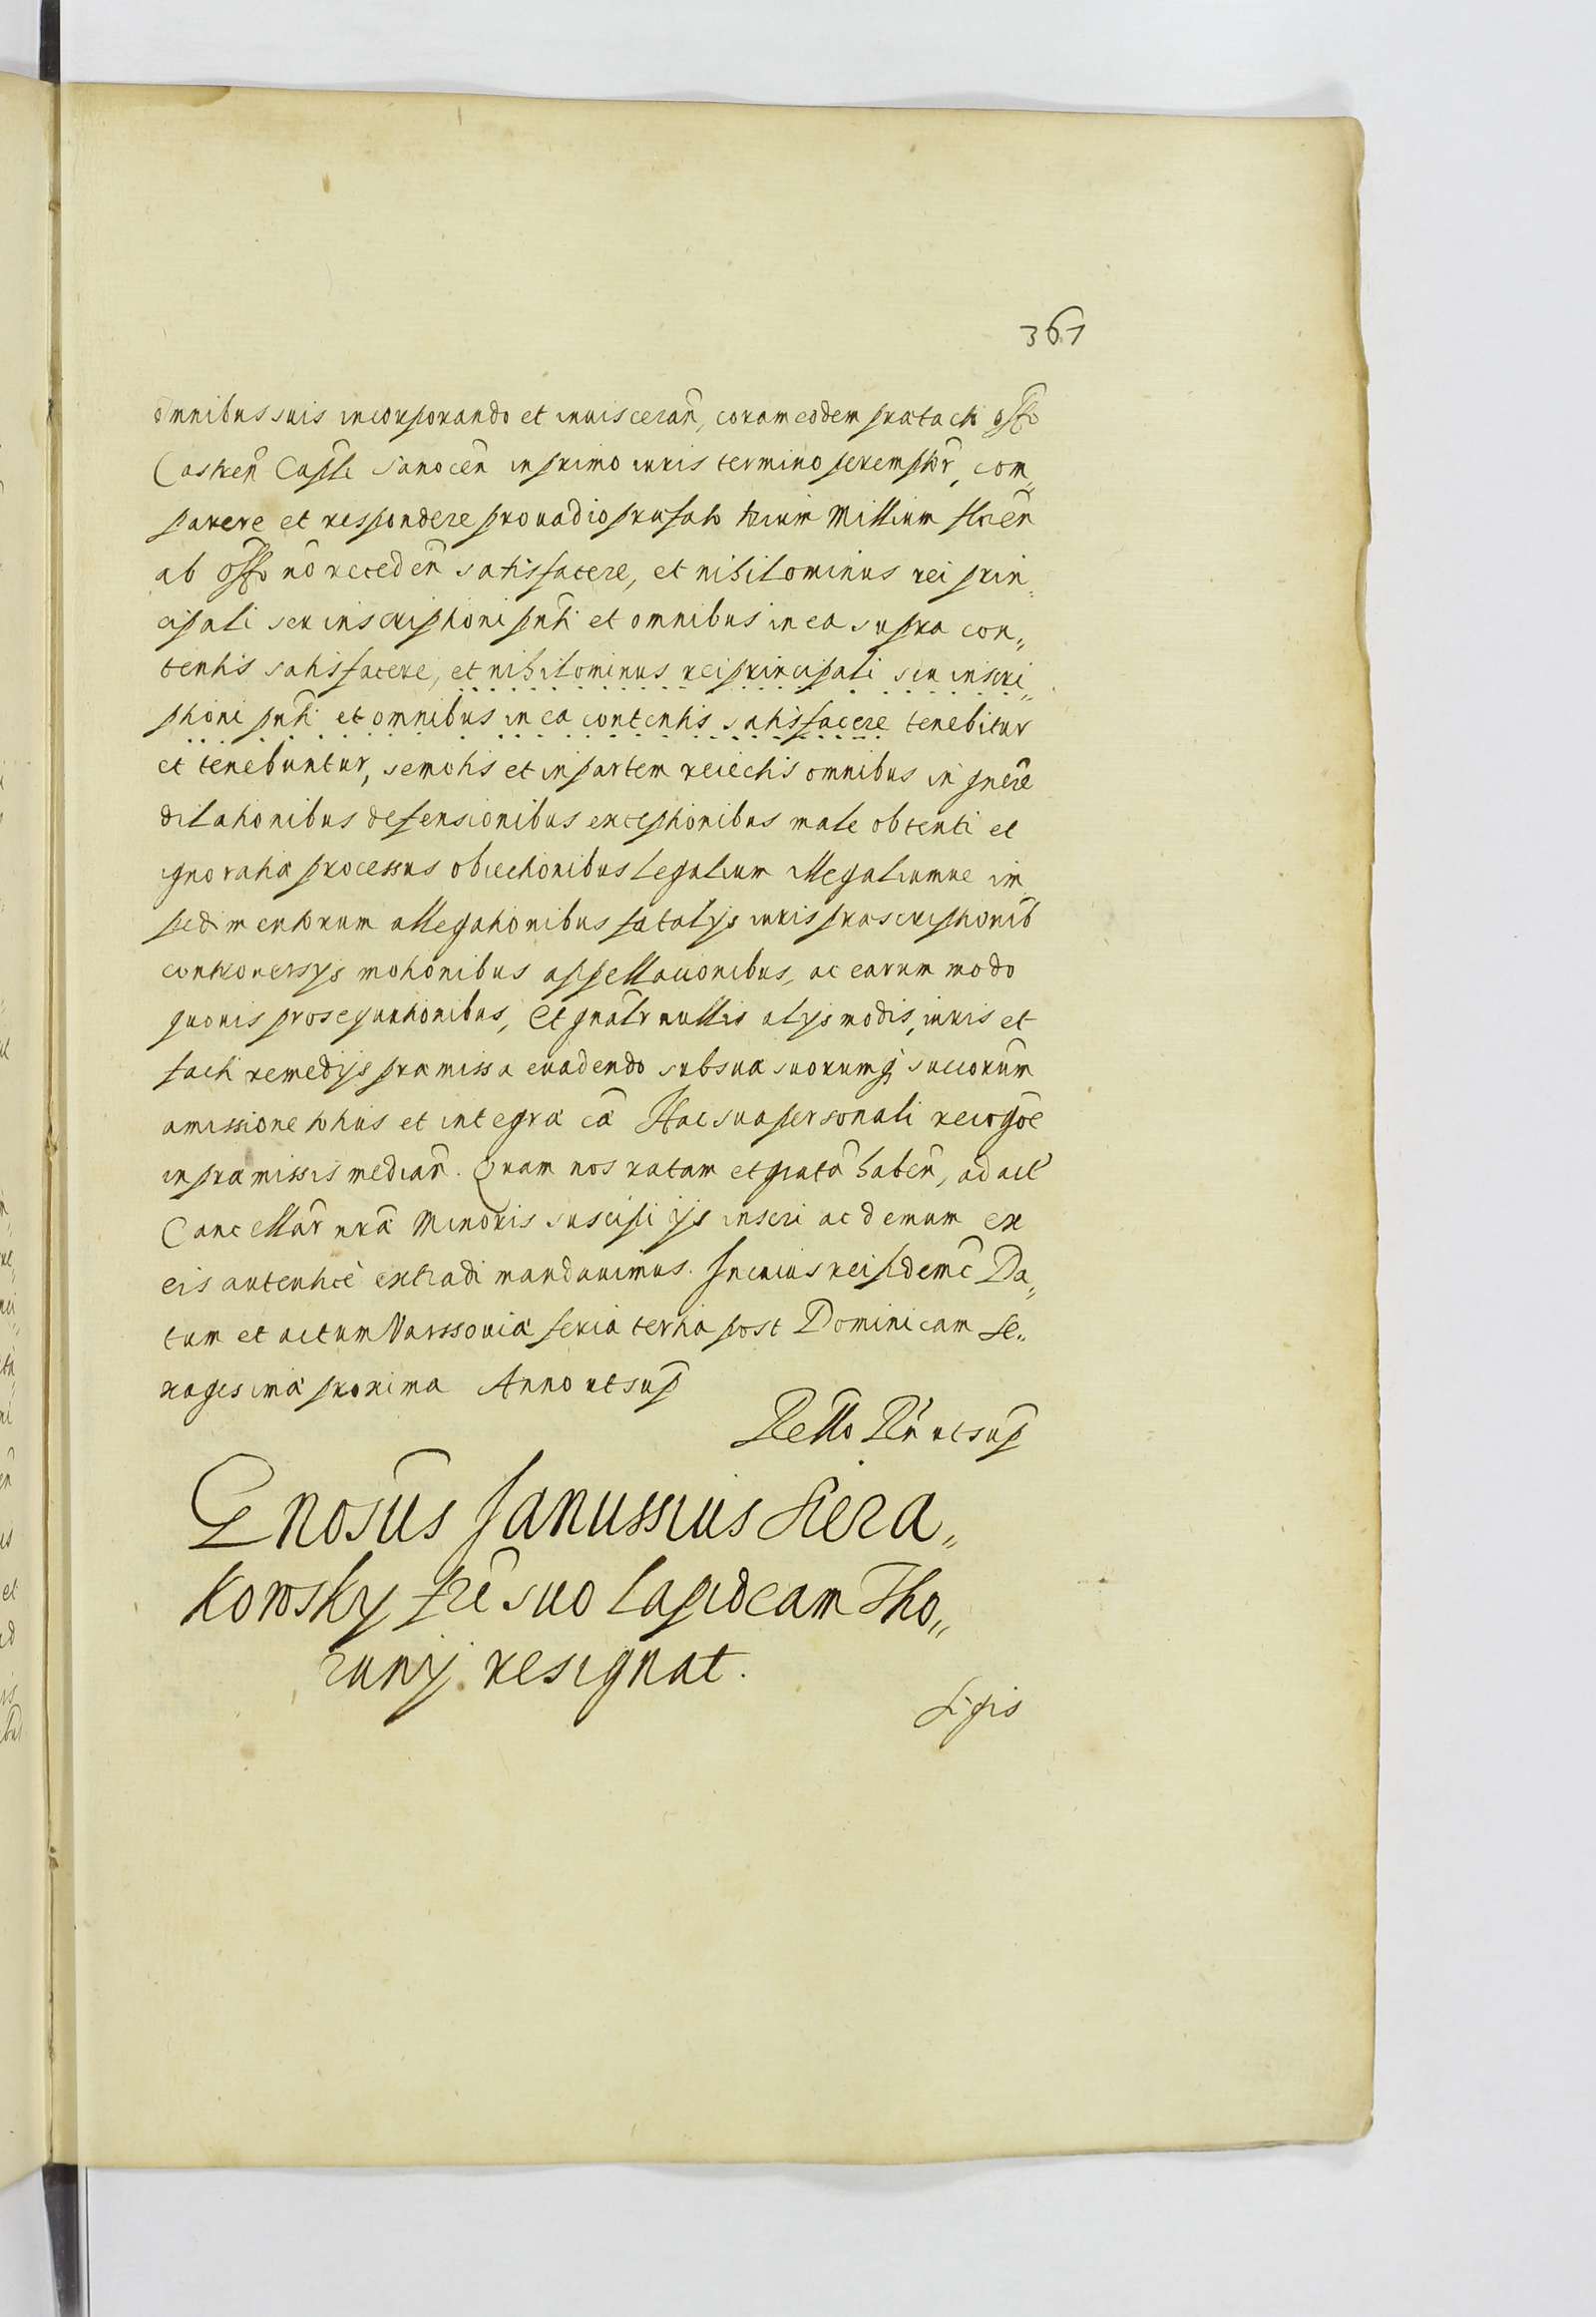 361
omnibus suis incorporando et inuisceran̄, coram eodem prætacti offo
Castren̄ Capli Sanocen̄ in primo iuris termino peremptor̄, com„
parere et respondere pro uadio præfato trium Millium flŕen̄
ab offo nō receden̄ satisfacere, et nihilominus rei prin„
cipali seu inscriptioni pn̄ti et omnibus in ea supra con„
tentis satisfacere, et nihilominus rei principali seu inscri„
ptioni pn̄ti et omnibus in ea contentis satisfacere tenebitur
et tenebuntur, semotis et in partem reiectis omnibus in gn̄ere
dilationibus defensionibus exceptionibus male obtenti et
ignoratiæ processus obiectionibus legalium illegaliumue im
pedimentorum allegationibus fatalijs iuris præscriptionib
controuersijs motionibus appellationibus, ac earum modo
quouis prosequutionibus, et gnal̄r nullis alijs modis, iuris et
facti remedijs præmissa euadendo sub sua suorumq̨ succorum̄
amissione totius et integræ cā Hac sua personali recogōe
in præmissis median̄. Quam nos ratam et gratā haben̄, ad act̄
Cancellar̄ nrā Minoris suscipi ijs inseri ac demum ex
eis autenticè extradi mandauimus. In cuius rei fidem c̄ Da„
tum et actum Varssouiæ feria tertia post Dominicam Se„
xagesimæ proxima Anno ut sup̄
Rel̄lo R̄n ut sup̄
Gn̄osus Janussius Siera„
kowsky frī suo lapideam Tho„
runij resignat.
Sigis